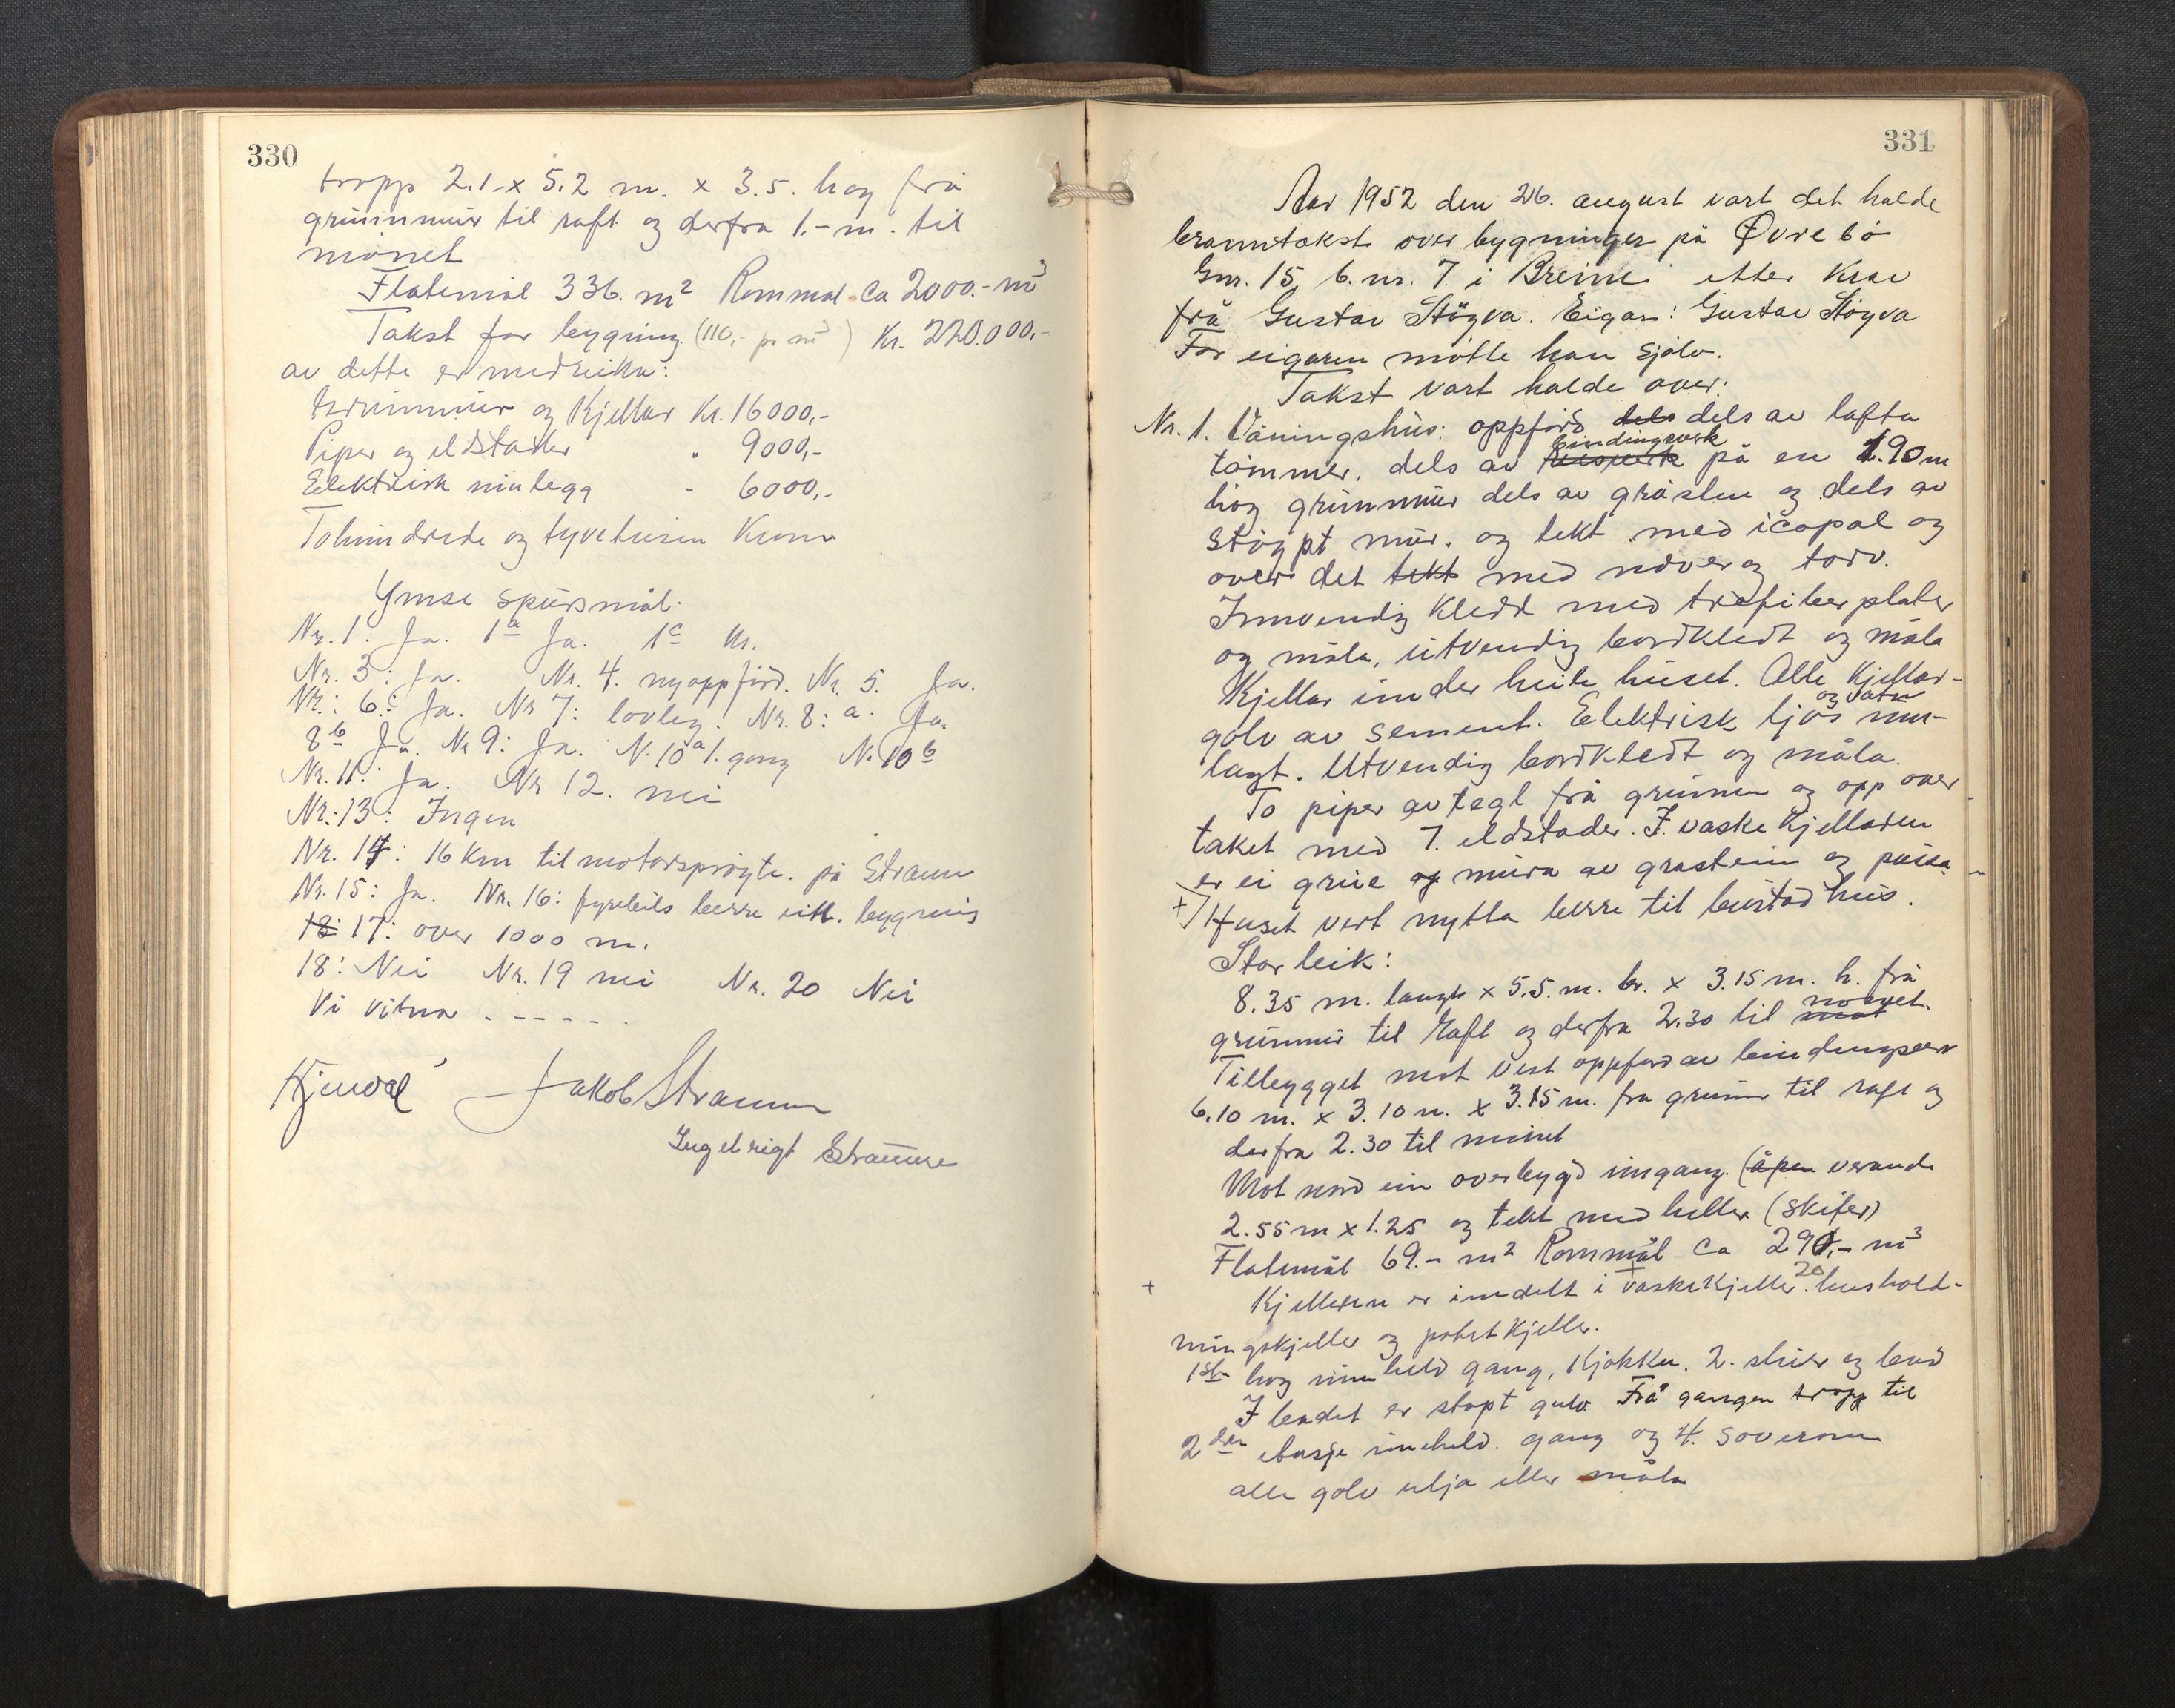 330
tropp 2.1 x 5.2 m. x 3.5. høg frå
grunnmur til raft og derfra 1.- m. til
mønet
Flatemål 336. m² Rommål ca 2000.- m³
Takst for bygning (110,- pr m³) Kr. 220.000,-
av dette er medreikna:
Grunnmur og Kjellar Kr. 16000,-
Piper og eldstader " 9000,-
Elektrisk innlegg - 6000,-
Tohundrede og tyvetusen Kron
Ymse spursmål.
Nr. 1. Ja. 1a Ja. 1c Kr.
Nr. 3: Ja. Nr. 4. nyoppförd. Nr. 5. Ja.
Nr: 6c: Ja. Nr 7: lovleg. Nr. 8: a. Ja.
8b Ja. Nr 9: Ja. N. 10a 1. gong N. 10b
Nr. 11. Ja. Nr 12. nei
Nr: 13: Ingen
Nr. 14: 16 km til motorsprøyte. på Straum
Nr. 15: Ja. Nr. 16: fyrebils berre eitt. bygning
18: 17: over 1000 m.
18: Nei Nr. 19 nei Nr. 20 Nei
Vi vitnar - - - - -
Jakob Straume
Ingebrigt Straume
331
Aar 1952 den 26. august vart det halde
branntakst over bygninger på Øvre bö
Gnr. 15, b.nr. 7 i Breim etter Krav
frå Gustav Støyva. Eigar: Gustav Støyva
For eigaren møtte han sjølv.
Takst vart halde over:
Nr. 1. Våningshus: oppförd dels dels av lafta
bindingsverk
tömmer, dels av på en 1.90 m
høg grunnmur dels av gråsten og dels av
støypt mur. og tekt med icopal og
over det tekt med never og torv.
Innvendig Kledd med trefiberplater
og måla, utvendig bordkledt og måla
Kjellar under heile huset. Alle Kjellar-
og vatn
golv av sement. Elektrisk ljos inn-
lagt. Utvendig bordkledt og måla.
To piper av tegl frå grunnen og opp over
taket med 7. eldstader. I vaske Kjellaren
er ei grue og mura av grastein og pussa
+ Huset vert nytta berre til bustad hus.
Storleik:
8.35 m. langt x 5.5. m. br. x 3.15 m. h. frå
mönet.
grunnmur til raft og derfra 2.30 til
Tilbygget mot Vest oppført av bindingsverk
6.10 m. x 3.10 m. x 3.15 m. fra grunnm til raft og
derfra 2.30 til mönet
Mot nord ein overbygd inngang. (åpen veranda
2.55 m x 1.25 og tekt med heller (skifer)
Flatemål 69.- m² Rommål ca 290,- m³
20
+ Kjelleren er inndelt i + vaskekjeller. hushold-
ningskjeller og potetkjeller.
1ste høg inneheld gang, Kjøkken. 2. stuer og bad
I badet er støpt gulv. Frå gangen tropp til
2den etasje inneheld. gang og 4. soverom
alle golv olja eller måla